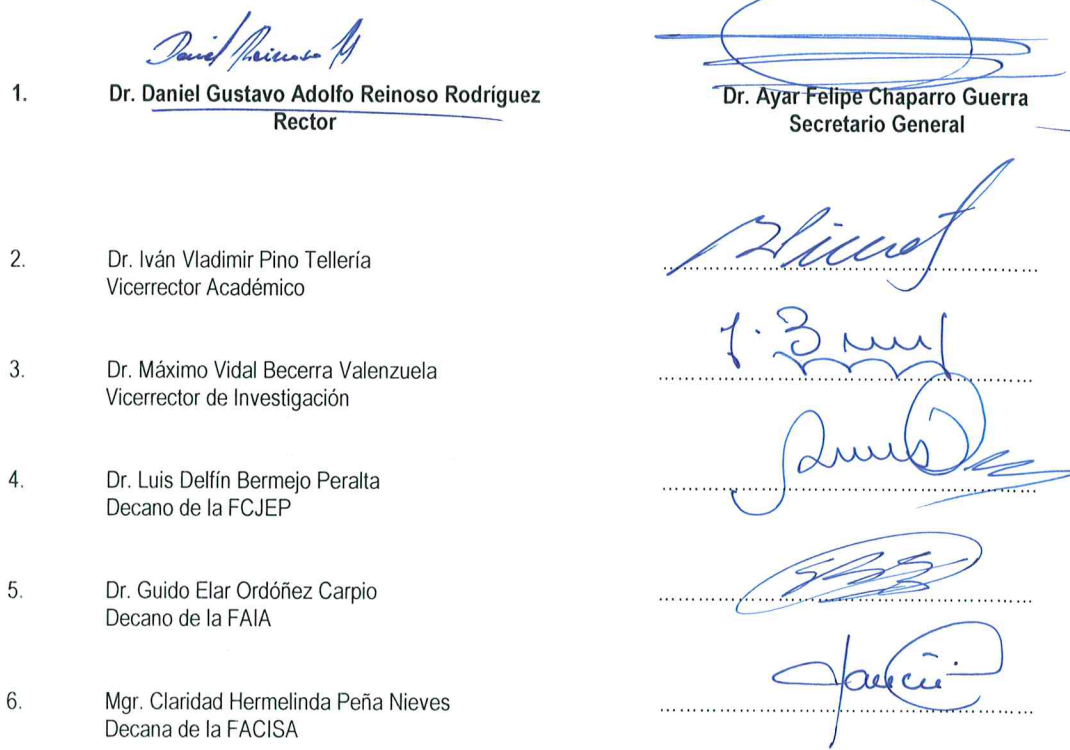 1. Dr. Daniel Gustavo Adolfo Reinoso Rodríguez
Rector
Dr. Ayar Felipe Chaparro Guerra
Secretario General
2. Dr. Iván Vladimir Pino Tellería
Vicerrector Académico
3. Dr. Máximo Vidal Becerra Valenzuela
Vicerrector de Investigación
4. Dr. Luis Delfín Bermejo Peralta
Decano de la FCJEP
5. Dr. Guido Elar Ordóñez Carpio
Decano de la FAIA
6. Mgr. Claridad Hermelinda Peña Nieves
Decana de la FACISA